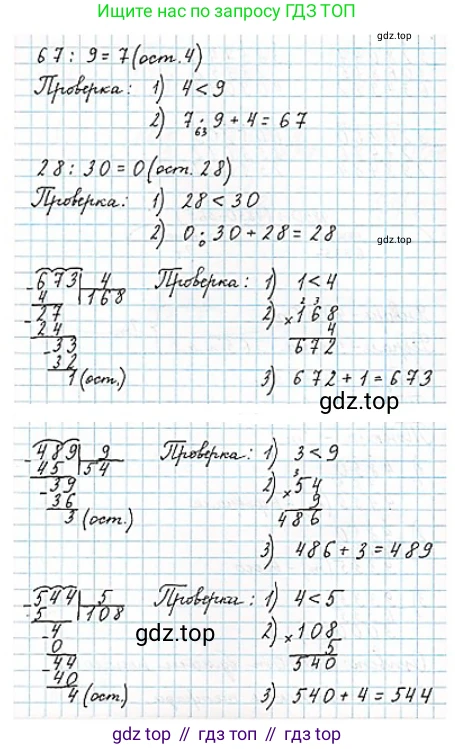 Ищите ответы по запросу ГДЗ ТОП
gdz.top
67 : 9 = 7 (ост. 4)
Проверка: 1) 4 < 9
2) 7 · 9 + 4 = 67
63
28 : 30 = 0 (ост. 28)
Проверка: 1) 28 < 30
2) 0 · 30 + 28 = 28
0
gdz.top
- 673 | 4 Проверка: 1) 1 < 4
4 168
2 3
- 27 2) × 168
24 4
- 33 672
32
1 (ост.) 3) 672 + 1 = 673
gdz.top
- 489 | 9 Проверка: 1) 3 < 9
45 54
3
- 39 2) × 54
36 9
3 (ост.) 486
3) 486 + 3 = 489
- 544 | 5 Проверка: 1) 4 < 5
5 108
gdz.top
- 4 2) × 108
0 5
- 44 540
40
4 (ост.) 3) 540 + 4 = 544
gdz.top // gdz.top // gdz.top